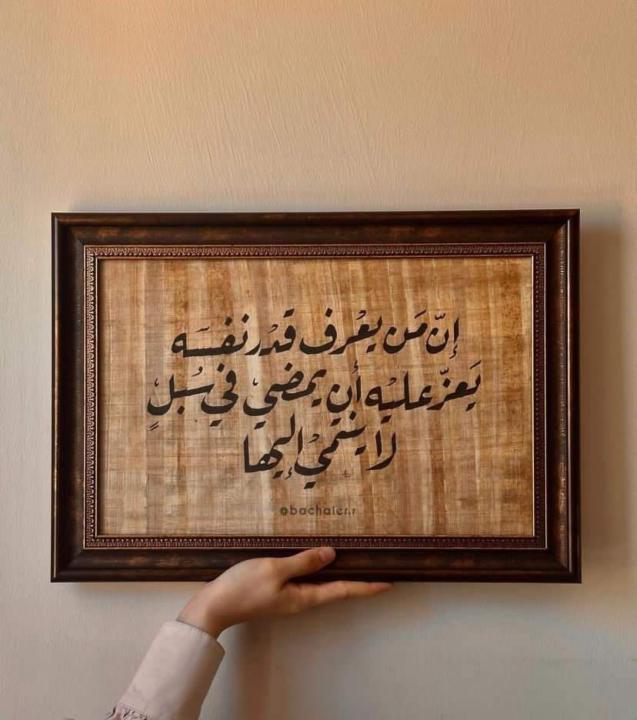 إنّ مَن يعْرف قدْر نفسَه
يَعزّ عليْه أن يمضيْ فيْ سُبلٍ
لا ينتميْ إليها
@bachaier.r